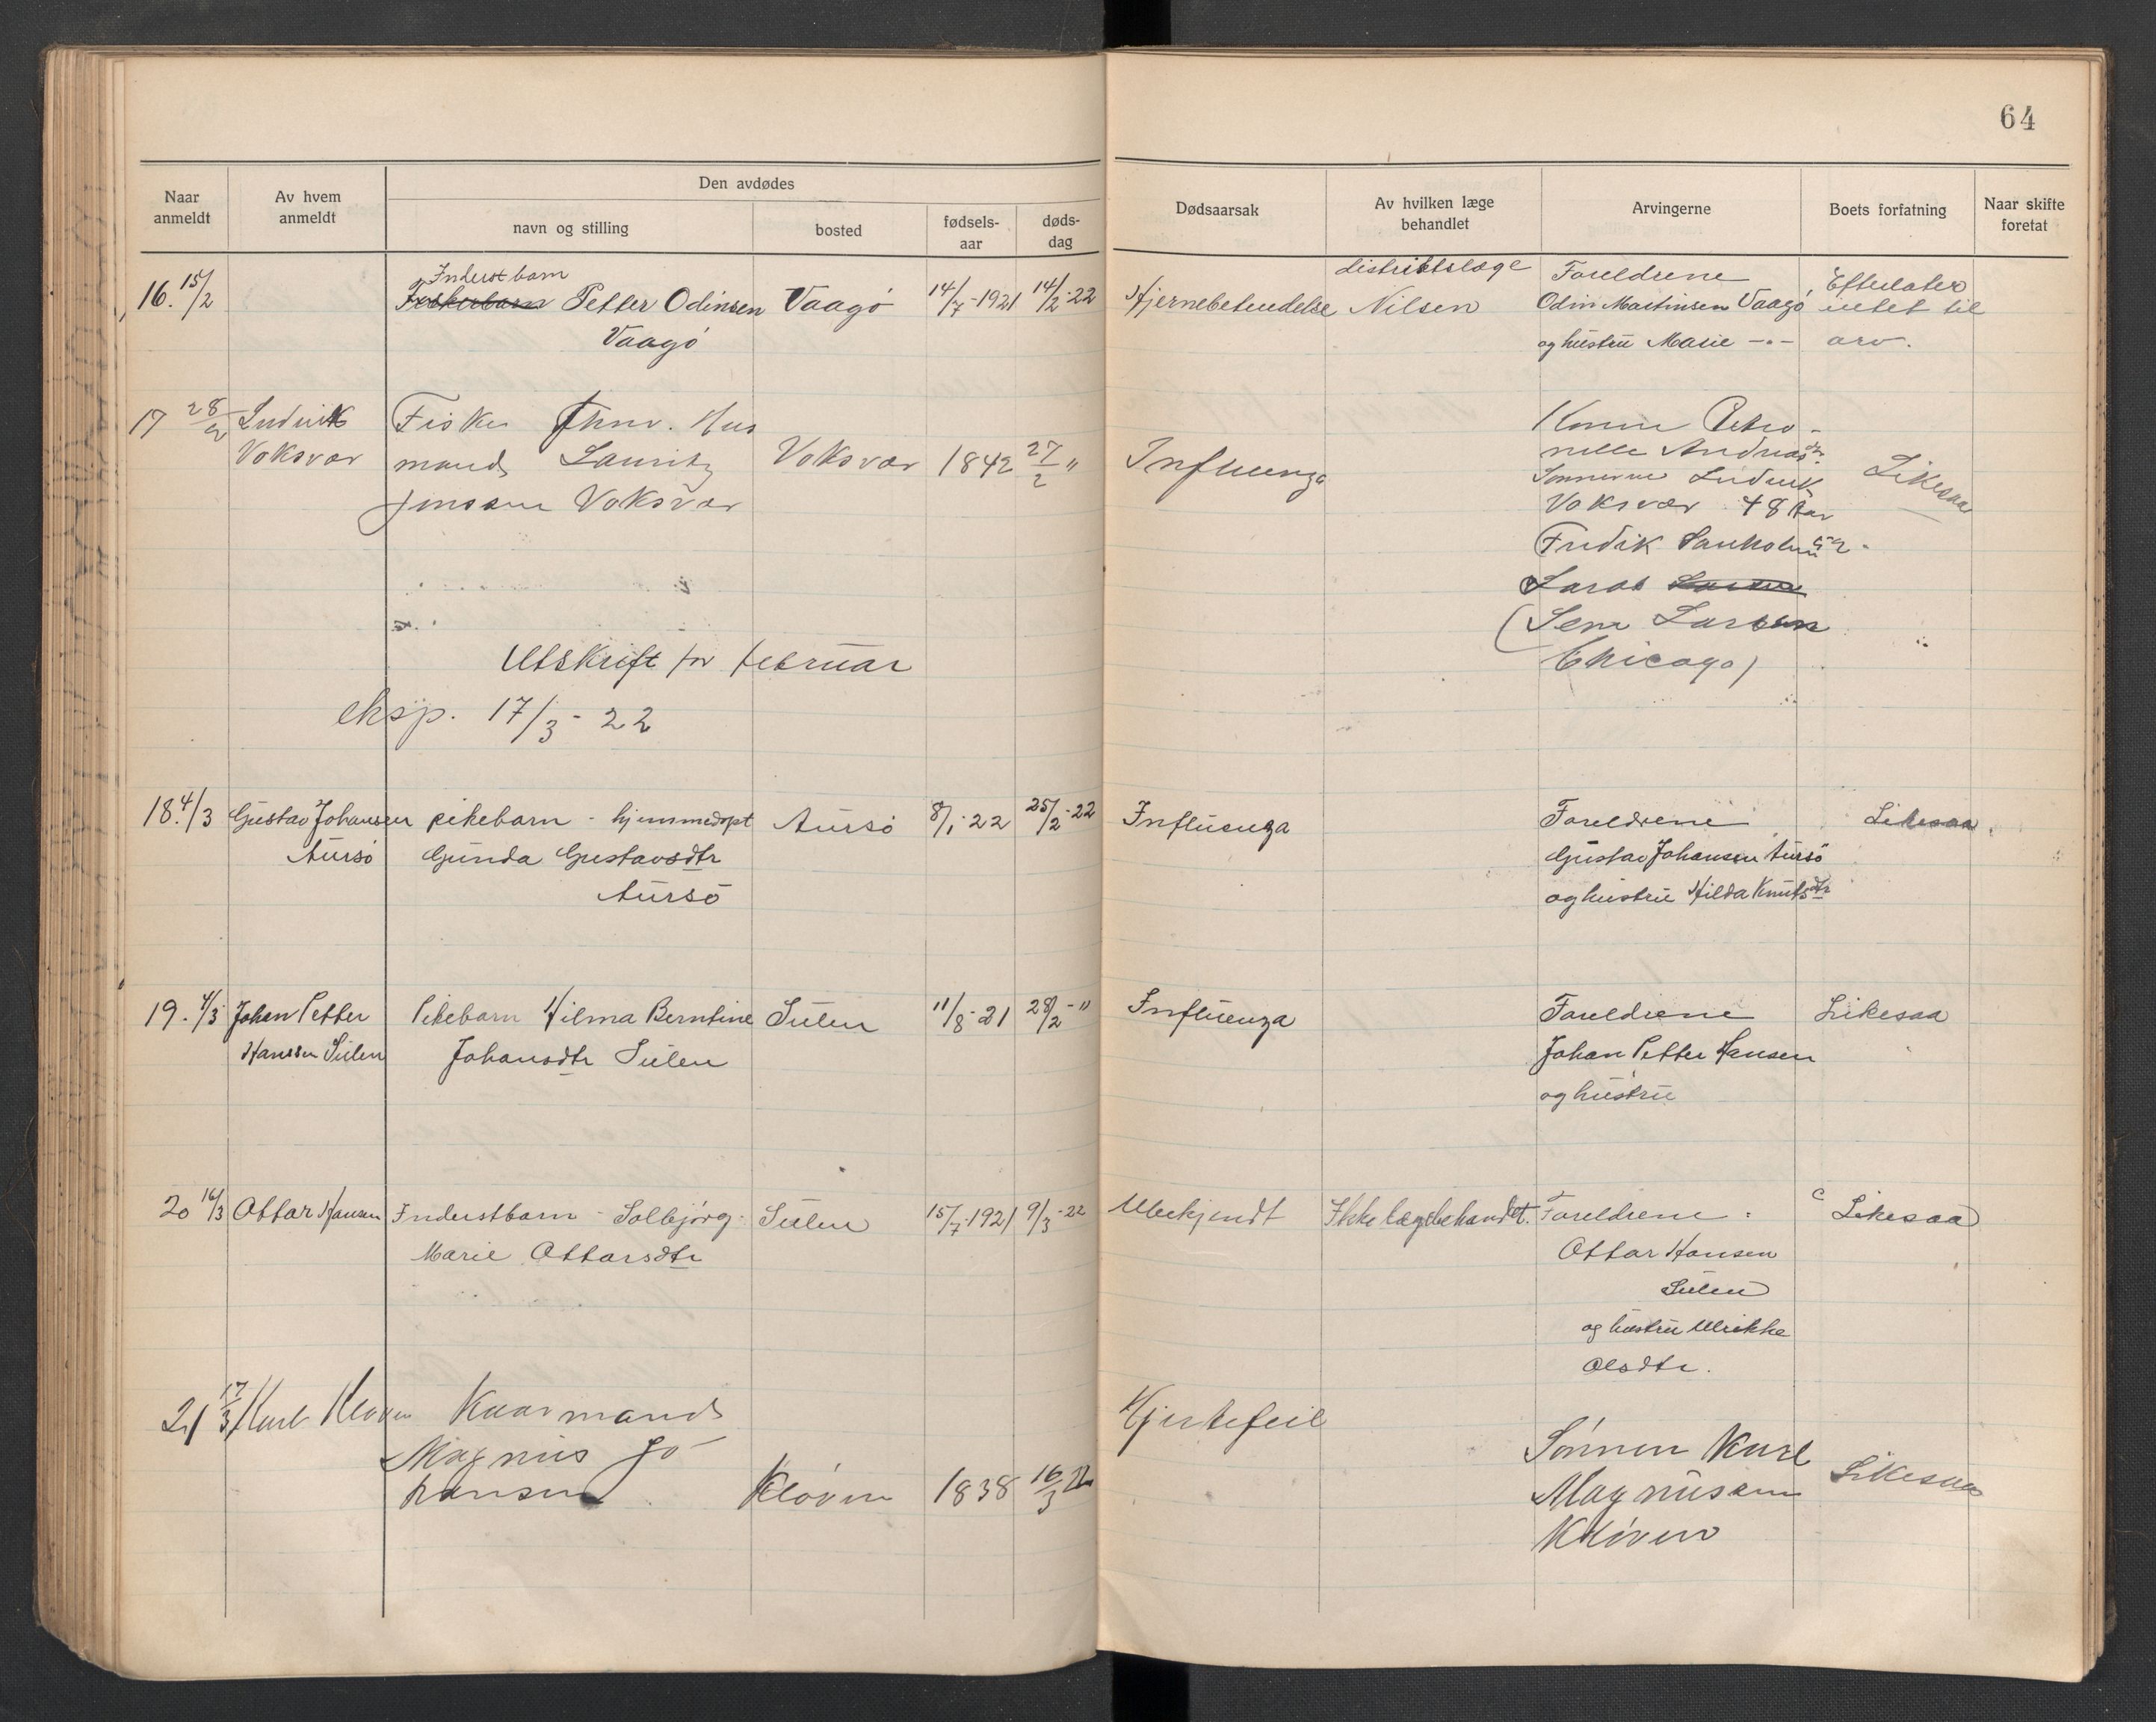 64
Naar anmeldt
Av hvem anmeldt
Den avdødes
navn og stilling
bosted
fødsels-aar
døds-dag
Dødsaarsak
Av hvilken læge behandlet
Arvingerne
Boets forfatning
Naar skifte foretat
16. 15/2
Inderst barn
Fiskerbarn Petter Odinsen
Vaagø
Vaagø
14/7-1921
14/2-22
Hjernebetendelse
distriktslæge
Nilsen
Foreldrene
Odin Martinsen Vaagø
og hustru Marie -"-
Efterlater
intet til
arv.
17 28/2
Ludvik
Voksvær
Fisker Hus
mands Lauritz
Jenssen Voksvær
Voksvær
1842
27/2 "
Influenza
Konen Petro-
nelle Andreasdtr.
Sønnerne Ludvik
Voksvær 48 Aar
Fredik
Lars
(Lem Larsen
Chicago)
Likesaa
Utskrift for februar
eksp. 17/3 - 22
18. 4/3
Gustav Johansen
Aursø
pikebarn - hjemmedøpt
Gunda Gustavsdtr
Aursø
Aursø
8/1-22
25/2-22
Influenza
Foreldrene
Gustav Johansen Aursø
og hustru Hilda Knutsdtr
Likesaa
19. 4/3
Johan Petter
Hanssen Sulen
Pikebarn Hilma Berntine
Johansdtr Sulen
Sulen
11/8-21
28/2-"
Influenza
Foreldrene
Johan Petter Hansen
og hustru
Likesaa
20 16/3
Ottar Hansen
Inderstbarn - Solbjørg-
Marie Ottarsdtr
Sulen
15/7-1921
9/3-22
Ubekjendt
Ikke lægebehandlet.
Foreldrene:
Ottar Hansen
Sulen
og hustru Ulrikke
Olsdtr.
Likesaa
21 17/3
Karl Kløven
Kaarmand
Magnus Jo-
hansen
Kløven
1838
16/3 22
Hjertefeil
Sønnen Karl
Magnussen
Kløven
Likesaa